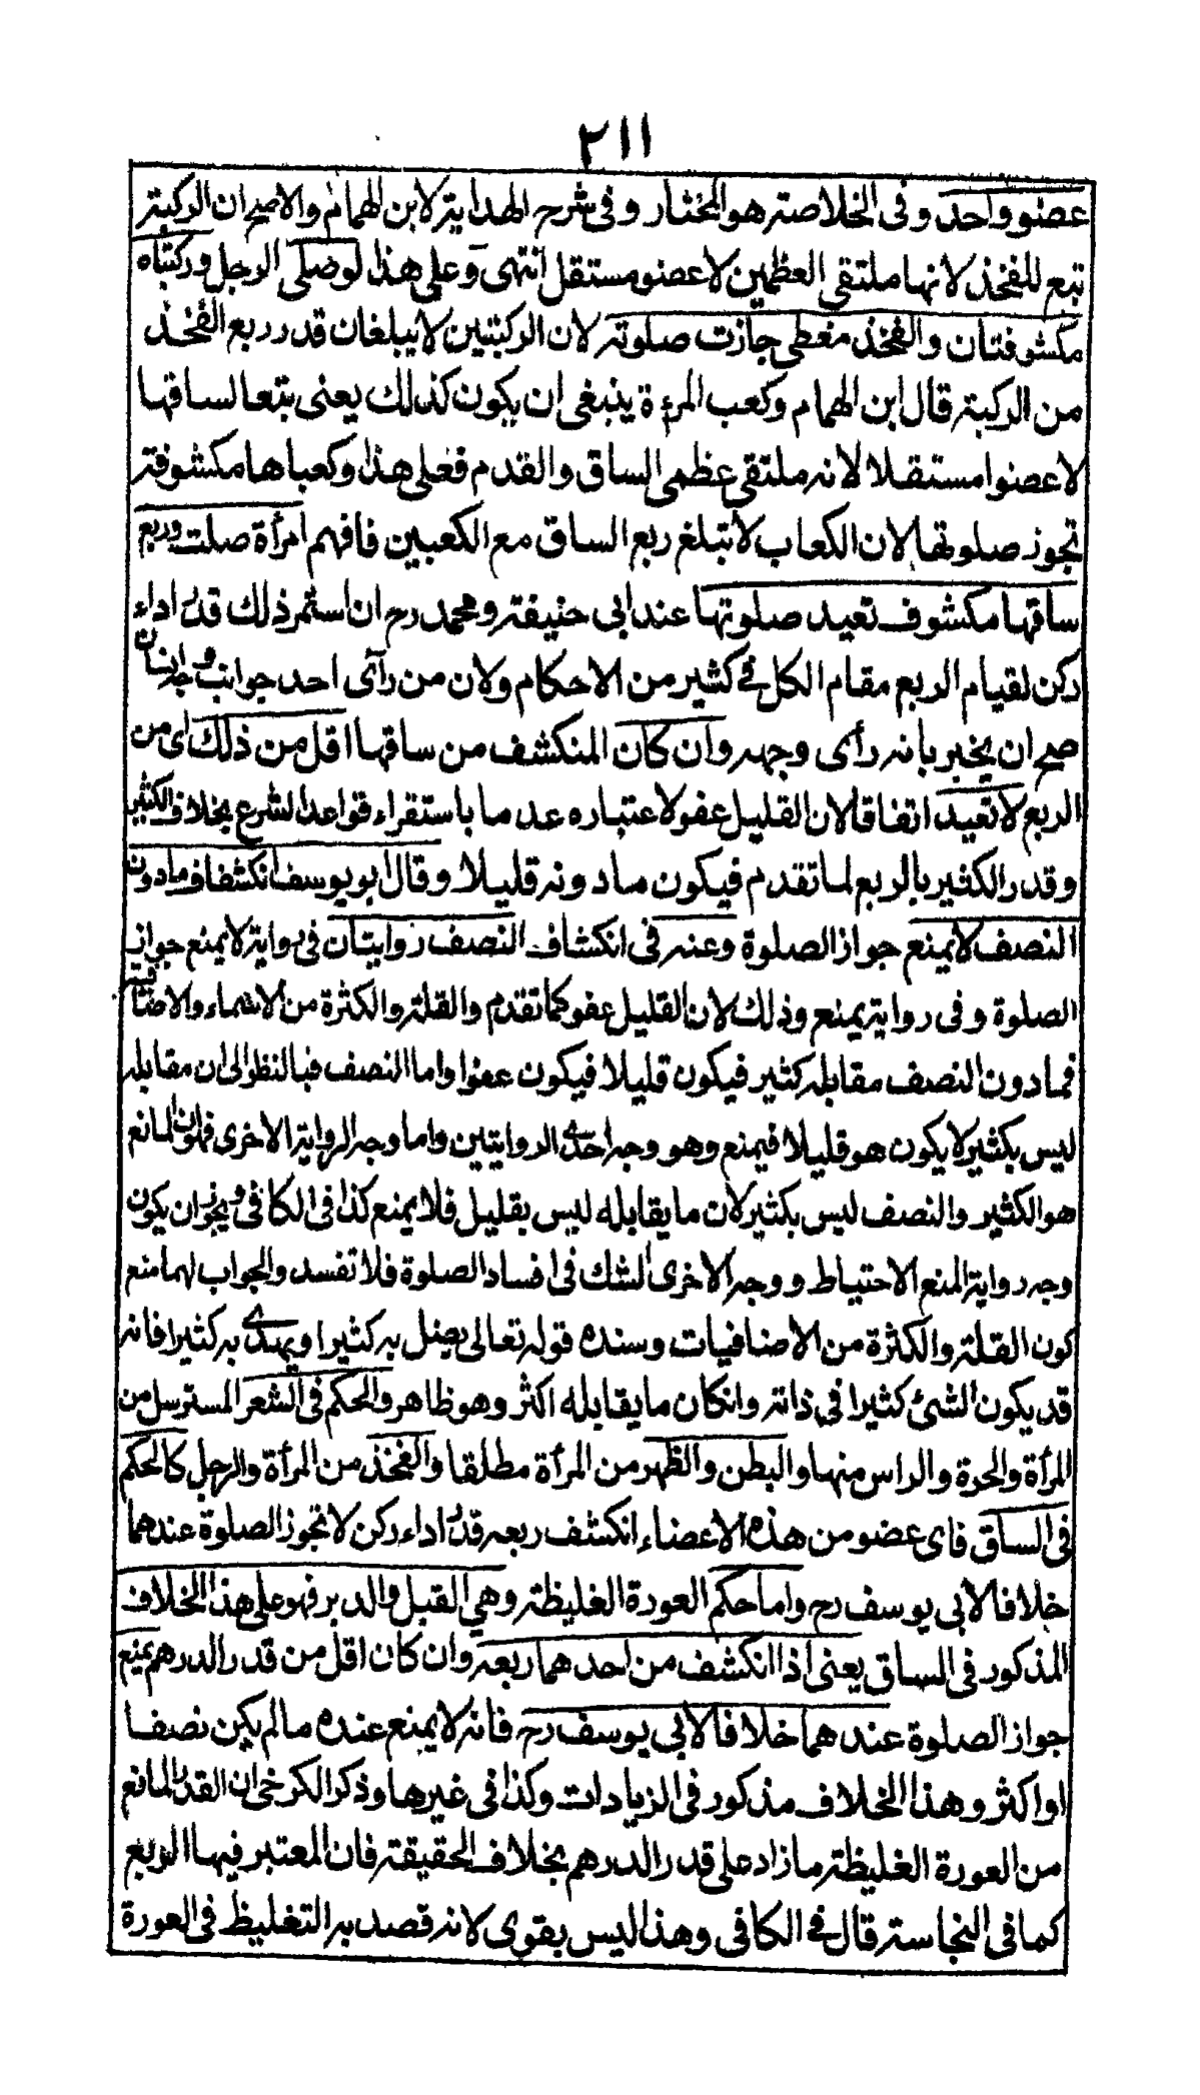 ٢١١
عضو واحد وفى الخلاصة هو المختار وفى شرح الهداية لابن الهمام والاصح ان الركبة
تبع للفخذ لانها ملتقى العظمين لا عضو مستقل انتهى وعلى هذا لو صلى الرجل وركبتاه
مكشوفتان والفخذ مغطى جازت صلوته لان الركبتين لا يبلغان قدر ربع الفخذ
من الركبة قال ابن الهمام وكعب المرءة ينبغى ان يكون كذلك يعنى تبعا لساقها
لا عضوا مستقلا لانه ملتقى عظمى الساق والقدم فعلى هذا وكعباها مكشوفة
تجوز صلوتها لان الكعاب لا تبلغ ربع الساق مع الكعبين فافهم امرأة صلت وربع
ساقها مكشوف تعيد صلوتها عند ابى حنيفة ومحمد رح ان استمر ذلك قدر اداء
ركن لقيام الربع مقام الكل فى كثير من الاحكام ولان من رأى احد جوانب وجه انسان
صح ان يخبر بانه رأى وجهه وان كان المنكشف من ساقها اقل من ذلك اى من
الربع لا تعيد اتفاقا لان القليل عفو لاعتباره عدما باستقراء قواعد الشرع بخلاف الكثير
وقدر الكثير بالربع لما تقدم فيكون ما دونه قليلا وقال ابو يوسف انكشاف ما دون
النصف لا يمنع جواز الصلوة وعنه فى انكشاف النصف روايتان فى رواية لا يمنع جواز
الصلوة وفى رواية يمنع وذلك لان القليل عفو كما تقدم والقلة والكثرة من الاسماء والاضافية
فما دون النصف مقابله كثير فيكون قليلا فيكون عفوا واما النصف فبالنظر الى ان مقابله
ليس بكثير لا يكون هو قليلا فيمنع وهو وجه احدى الروايتين واما وجه الرواية الاخرى فهو ان المانع
هو الكثير والنصف ليس بكثير لان ما يقابله ليس بقليل فلا يمنع كذا فى الكافى ويجوز ان يكون
وجه رواية المنع الاحتياط ووجه الاخرى الشك فى افساد الصلوة فلا تفسد والجواب لهما منع
كون القلة والكثرة من الاضافيات وسنده قوله تعالى يضل به كثيرا ويهدى به كثيرا فانه
قد يكون الشئ كثيرا فى ذاته وانكان ما يقابله اكثر وهو ظاهر والحكم فى الشعر المسترسل من
المرأة والحرة والراس منها والبطن والظهر من المرأة مطلقا والفخذ من المرأة والرجل كالحكم
فى الساق فاى عضو من هذه الاعضاء انكشف ربعه قدر اداء ركن لا تجوز الصلوة عندهما
خلافا لابى يوسف رح واما حكم العورة الغليظة وهى القبل والدبر فهو على هذا الخلاف
المذكور فى الساق يعنى اذا انكشف من احدهما ربعه وان كان اقل من قدر الدرهم يمنع
جواز الصلوة عندهما خلافا لابى يوسف رح فانه لا يمنع عنده ما لم يكن نصفا
او اكثر وهذا الخلاف مذكور فى الزيادات وكذا فى غيرها وذكر الكرخى ان القدر المانع
من العورة الغليظة ما زاد على قدر الدرهم بخلاف الحقيقة فان المعتبر فيها الربع
كما فى النجاسة قال فى الكافى وهذا ليس بقوى لانه قصد به التغليظ فى العورة